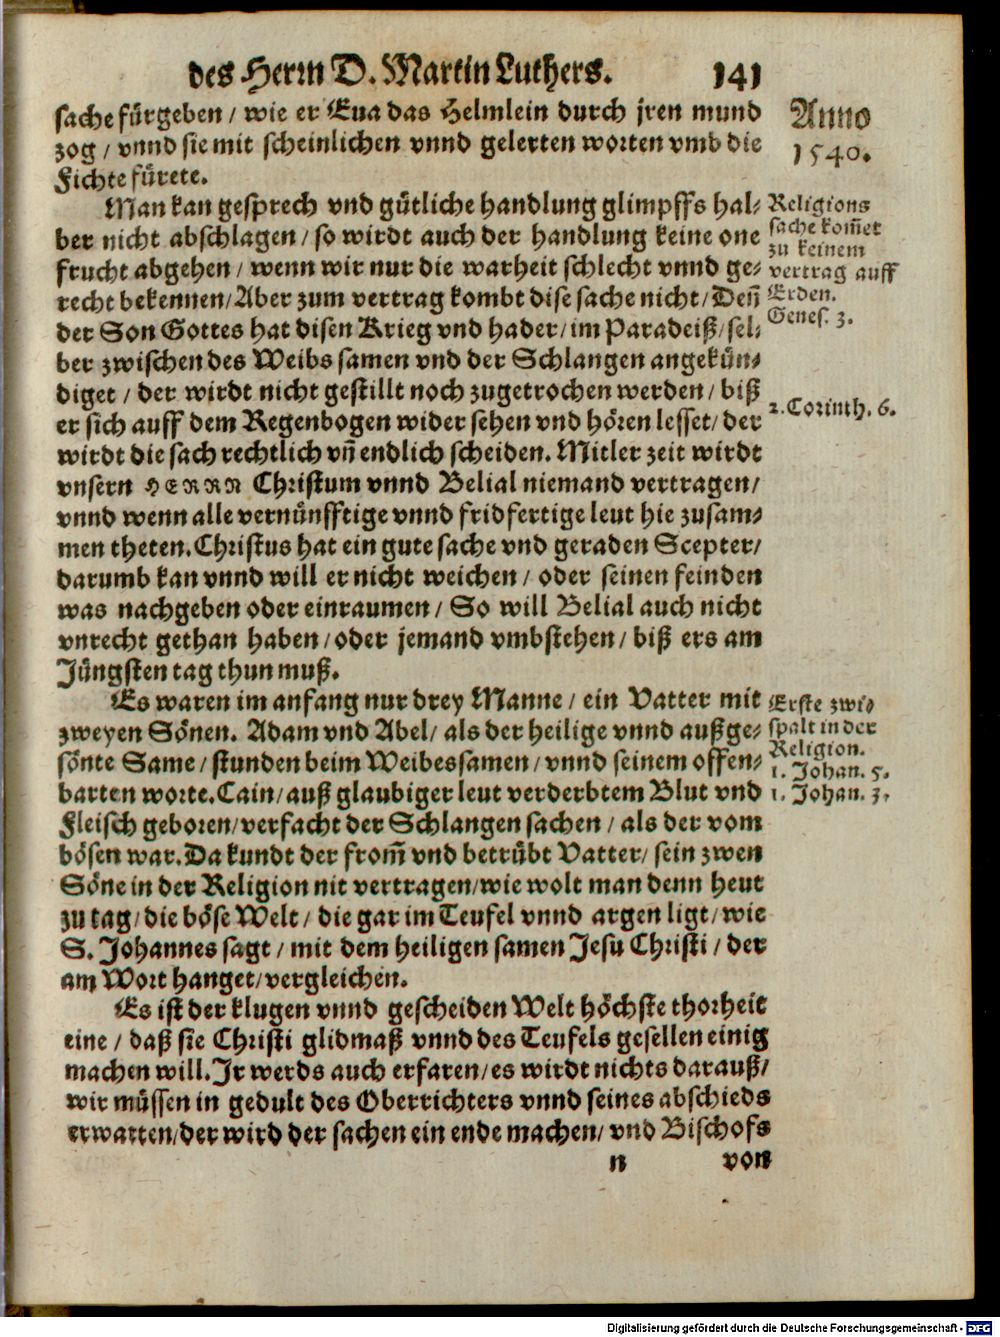 des Herrn D. Martin Luthers. 141
sache fürgeben / wie er Eua das Helmlein durch jren mund
zog / vnnd sie mit scheinlichen vnnd gelerten worten vmb die
Fichte fürete.
Anno
1540.
Man kan gesprech vnd gütliche handlung glimpffs hal-
ber nicht abschlagen / so wirdt auch der handlung keine one
frucht abgehen / wenn wir nur die warheit schlecht vnnd ge-
recht bekennen / Aber zum vertrag kombt dise sache nicht / Deñ
der Son Gottes hat disen Krieg vnd hader / im Paradeiß / sel-
ber zwischen des Weibs samen vnd der Schlangen angekün-
diget / der wirdt nicht gestillt noch zugetrochen werden / biß
er sich auff dem Regenbogen wider sehen vnd hören lesset / der
wirdt die sach rechtlich vñ endlich scheiden. Mitler zeit wirdt
vnsern HERRN Christum vnnd Belial niemand vertragen /
vnnd wenn alle vernünfftige vnnd fridfertige leut hie zusam-
men theten. Christus hat ein gute sache vnd geraden Scepter /
darumb kan vnnd will er nicht weichen / oder seinen feinden
was nachgeben oder einraumen / So will Belial auch nicht
vnrecht gethan haben / oder jemand vmbstehen / biß ers am
Jüngsten tag thun muß.
Religions
sache kom̃et
zu keinem
vertrag auff
Erden.
Genes. 3.
2. Corinth. 6.
Es waren im anfang nur drey Manne / ein Vatter mit
zweyen Sönen. Adam vnd Abel / als der heilige vnnd außge-
sönte Same / stunden beim Weibessamen / vnnd seinem offen-
barten worte. Cain / auß glaubiger leut verderbtem Blut vnd
Fleisch geboren / verfacht der Schlangen sachen / als der vom
bösen war. Da kundt der from̃ vnd betrübt Vatter / sein zwen
Söne in der Religion nit vertragen / wie wolt man denn heut
zu tag / die böse Welt / die gar im Teufel vnnd argen ligt / wie
S. Johannes sagt / mit dem heiligen samen Jesu Christi / der
am Wort hanget / vergleichen.
Erste zwi-
spalt in der
Religion.
1. Johan. 5.
1. Johan. 3.
Es ist der klugen vnnd gescheiden Welt höchste thorheit
eine / daß sie Christi glidmaß vnnd des Teufels gesellen einig
machen will. Jr werds auch erfaren / es wirdt nichts darauß /
wir müssen in gedult des Oberrichters vnnd seines abschieds
erwarten / der wird der sachen ein ende machen / vnd Bischofs
n von
Digitalisierung gefördert durch die Deutsche Forschungsgemeinschaft - DFG